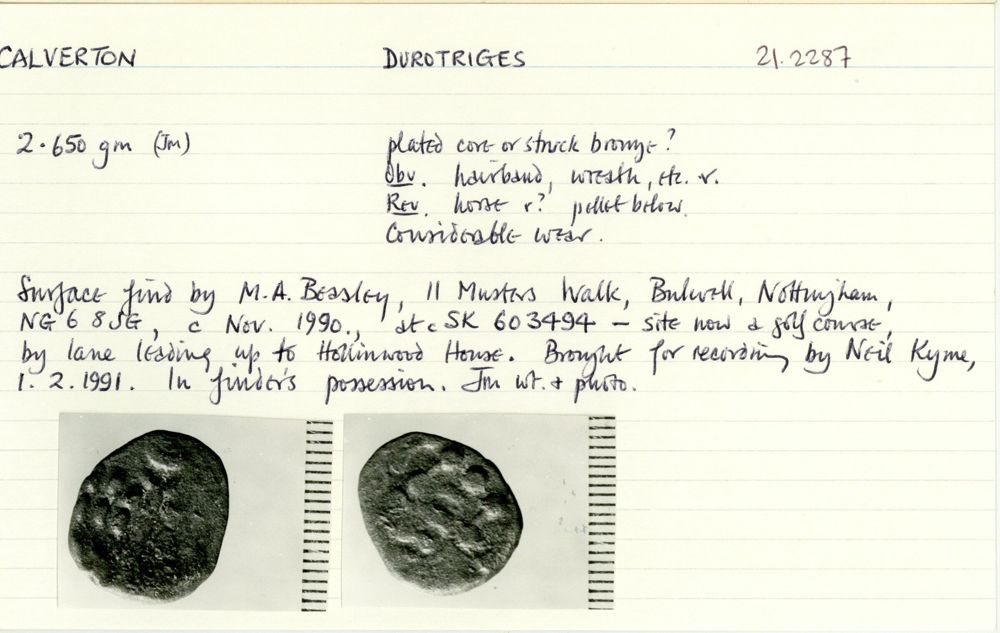 CALVERTON DUROTRIGES 21.2287
2.650 gm (Jm) plated core or struck bronze?
Obv. hairband, wreath, etc. r.
Rev. horse r? pellet below.
Considerable wear.
Surface find by M.A. Beasley, 11 Musters Walk, Bulwell, Nottingham,
NG6 8JG, c Nov. 1990., at c SK 603494 – site now a golf course,
by lane leading up to Hollinwood House. Brought for recording by Neil Kyme,
1. 2. 1991. In finder's possession. Jm wt. + photo.